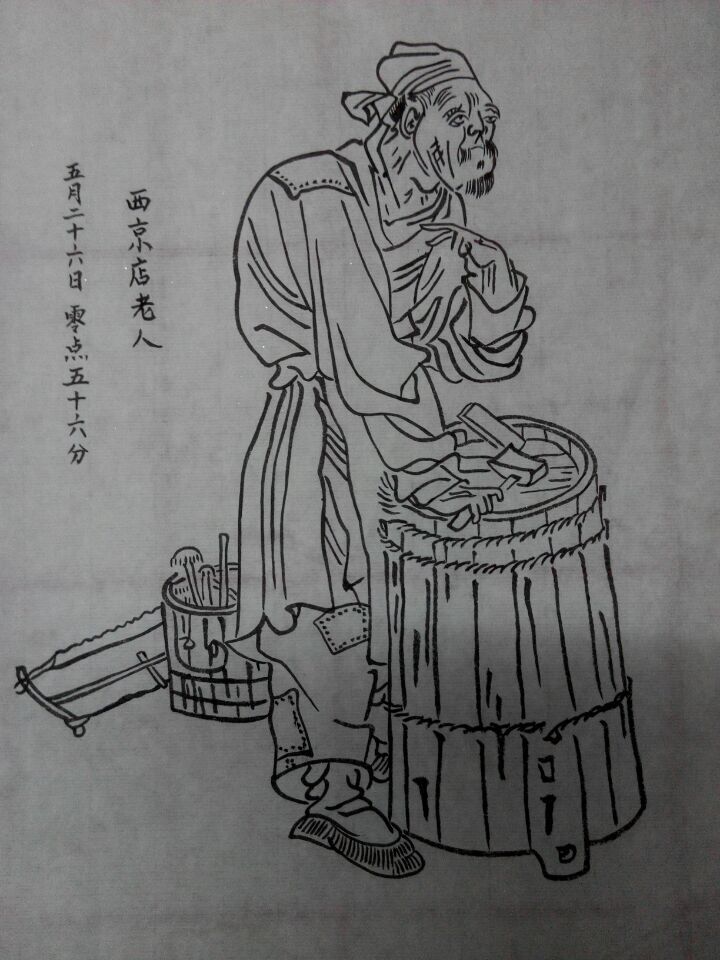 西京店老人
五月二十六日 零点五十六分